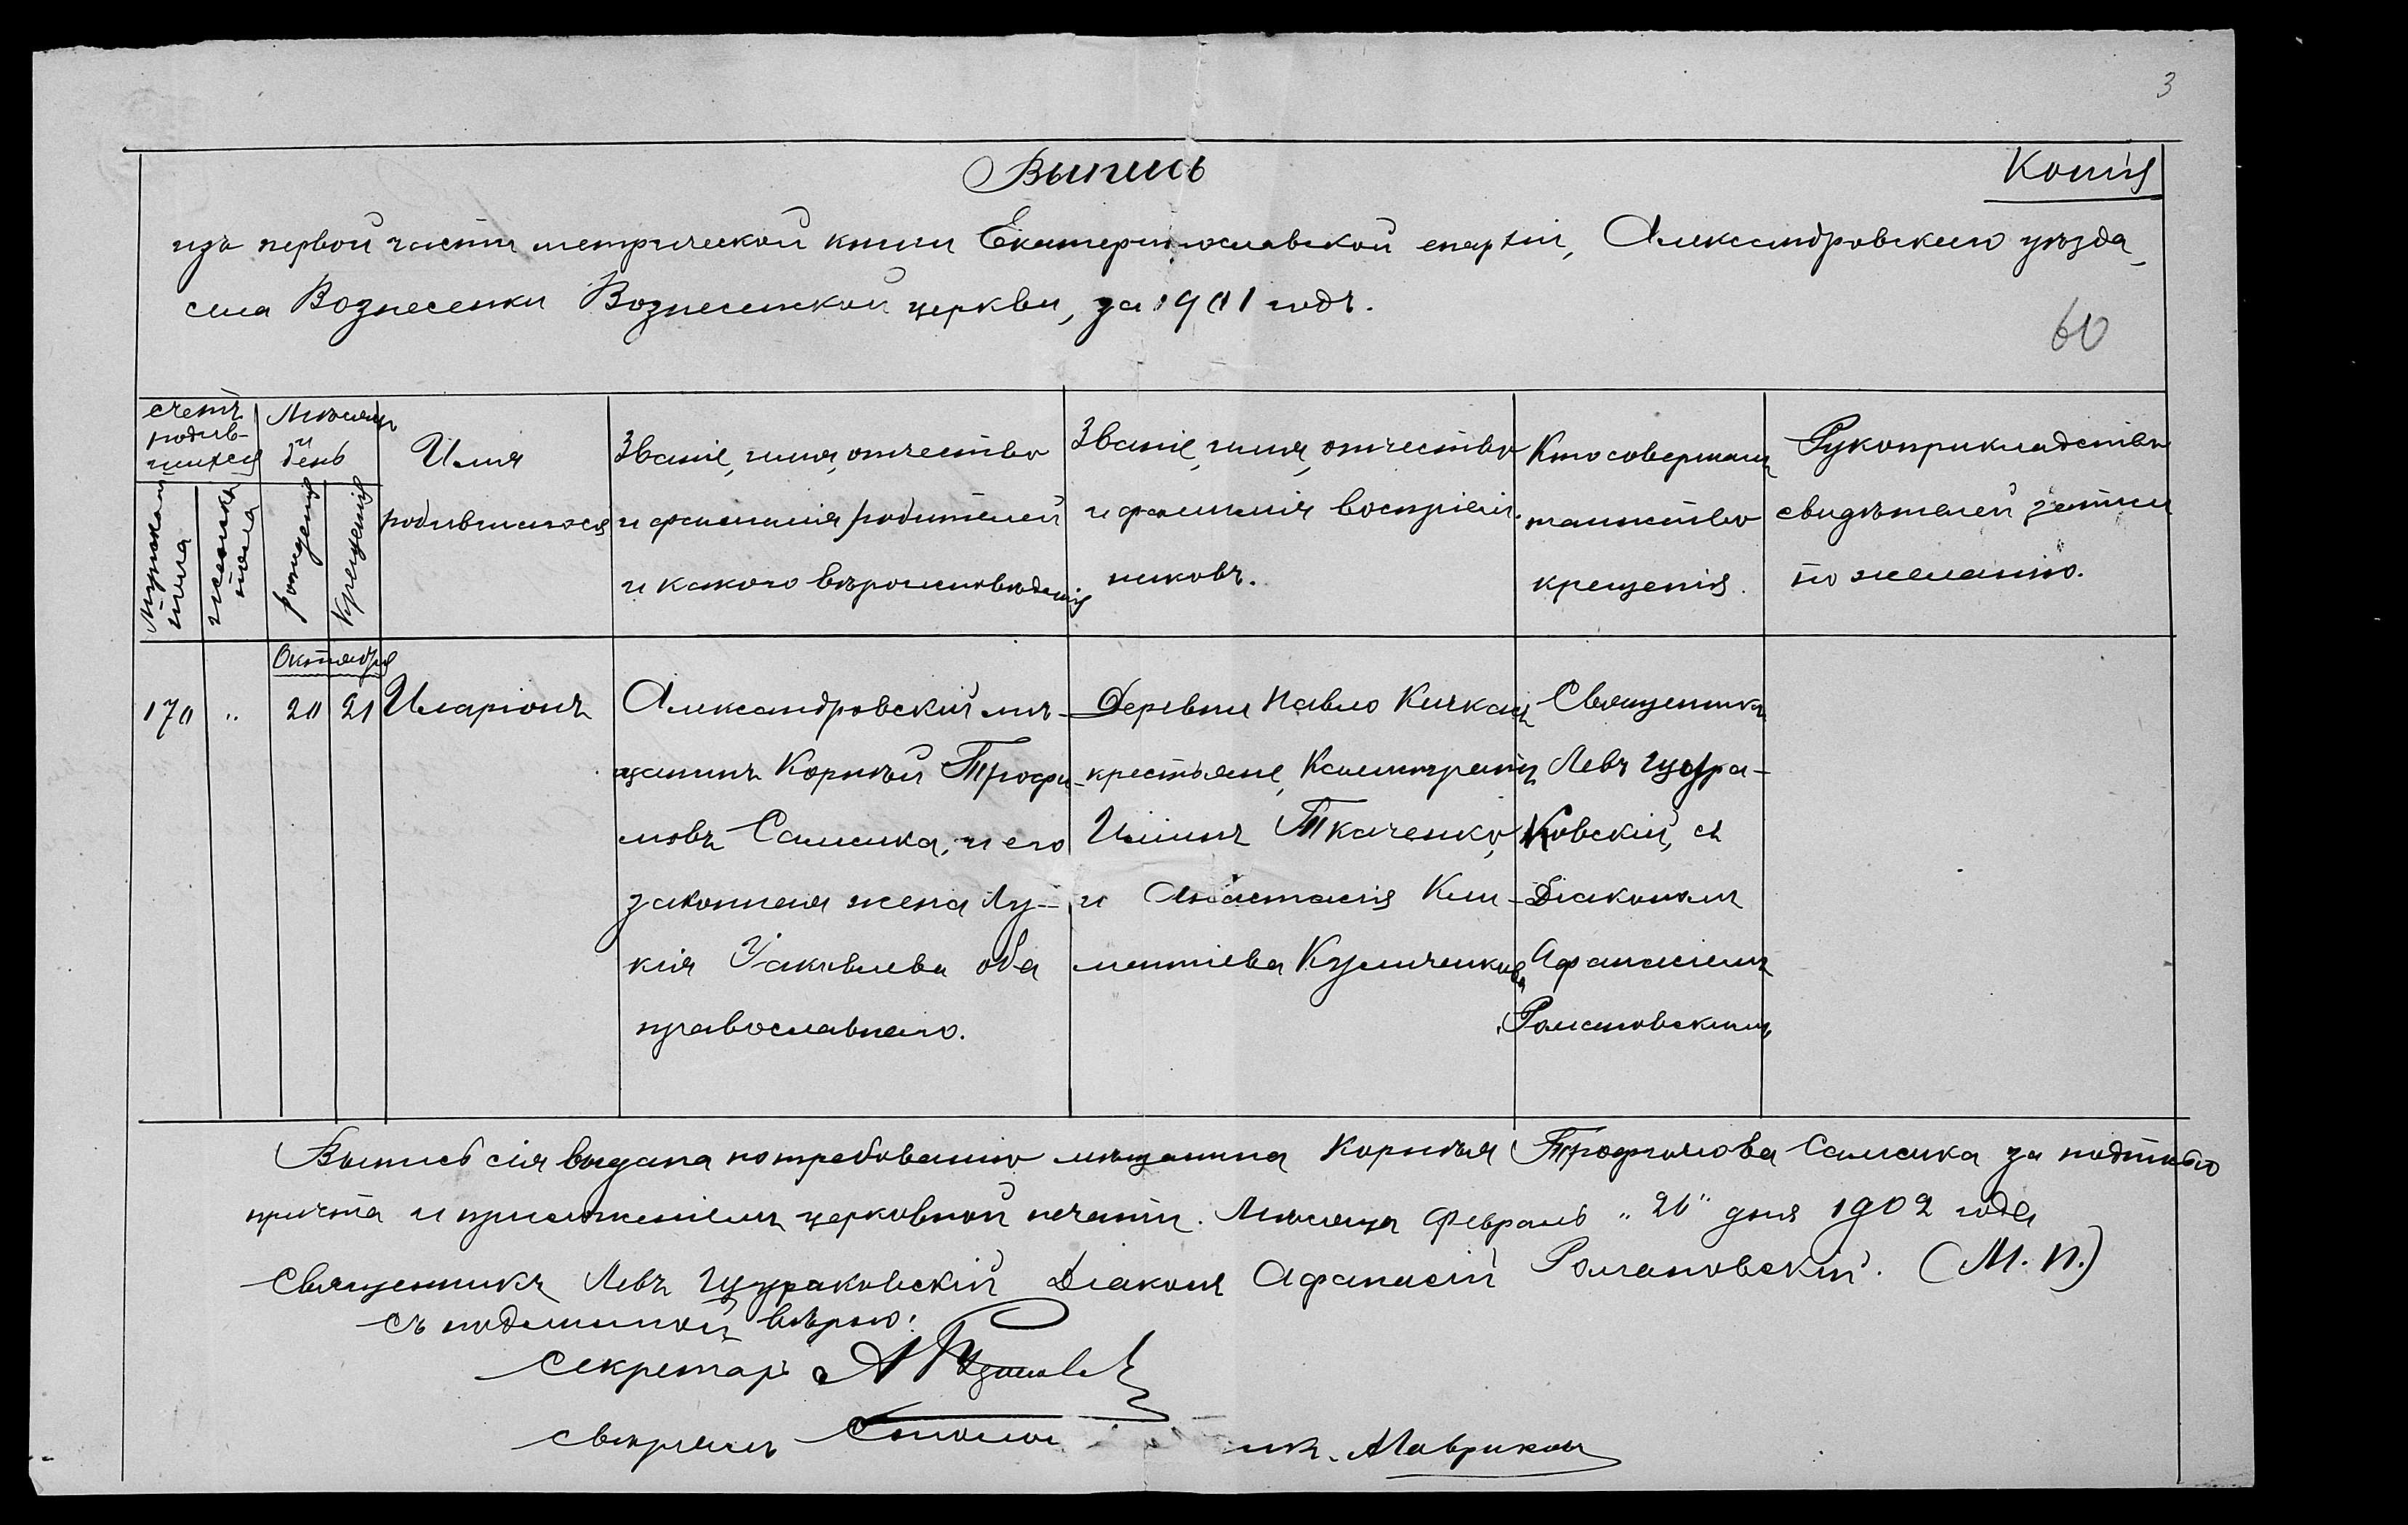 3
Выпись
Копія
изъ первой части метрической книги Екатеринославской епархіи, Александровскаго уѣзда,
села Вознесенки Вознесенской церкви, за 1901 годъ.
60
счетъ родив-шихся
Мѣсяцъ и день
Имя родившагося
Званіе, имя, отчество и фамилія родителей и какого вѣроисповѣданія
Званіе, имя, отчество и фамилія воспріем-никовъ.
Кто совершалъ таинство крещенія.
Рукоприкладство свидѣтелей записи по желанію.
Мужскаго пола
женска пола
рожденія
Крещенія
Октября
170 " 20 21 Иларіонъ
Александровскій мѣ-
щанинъ Корнѣй Трофи-
мовъ Самсика, и его
законная жена Лу-
кія Іаковлева оба
православнаго.
Деревни Павло Кичкасъ
крестьяне,
Ткаченко,
и Анастасія Кли-
ментіева
Священникъ
Левъ Щура-
ковскій, съ
Діакономъ
Афанасіемъ
Романовскимъ
Выпись сія выдана по требованію мѣщанина Корнѣя Трофимова Самсика за подписью
причта и приложеніемъ церковной печати. Мѣсяца Февраль „26" дня 1902 года
Священникъ Левъ Щураковскій Діаконъ Афанасій Романовскій. (М. П.)
Съ подлинной вѣрно:
Секретарь А
свѣрялъ